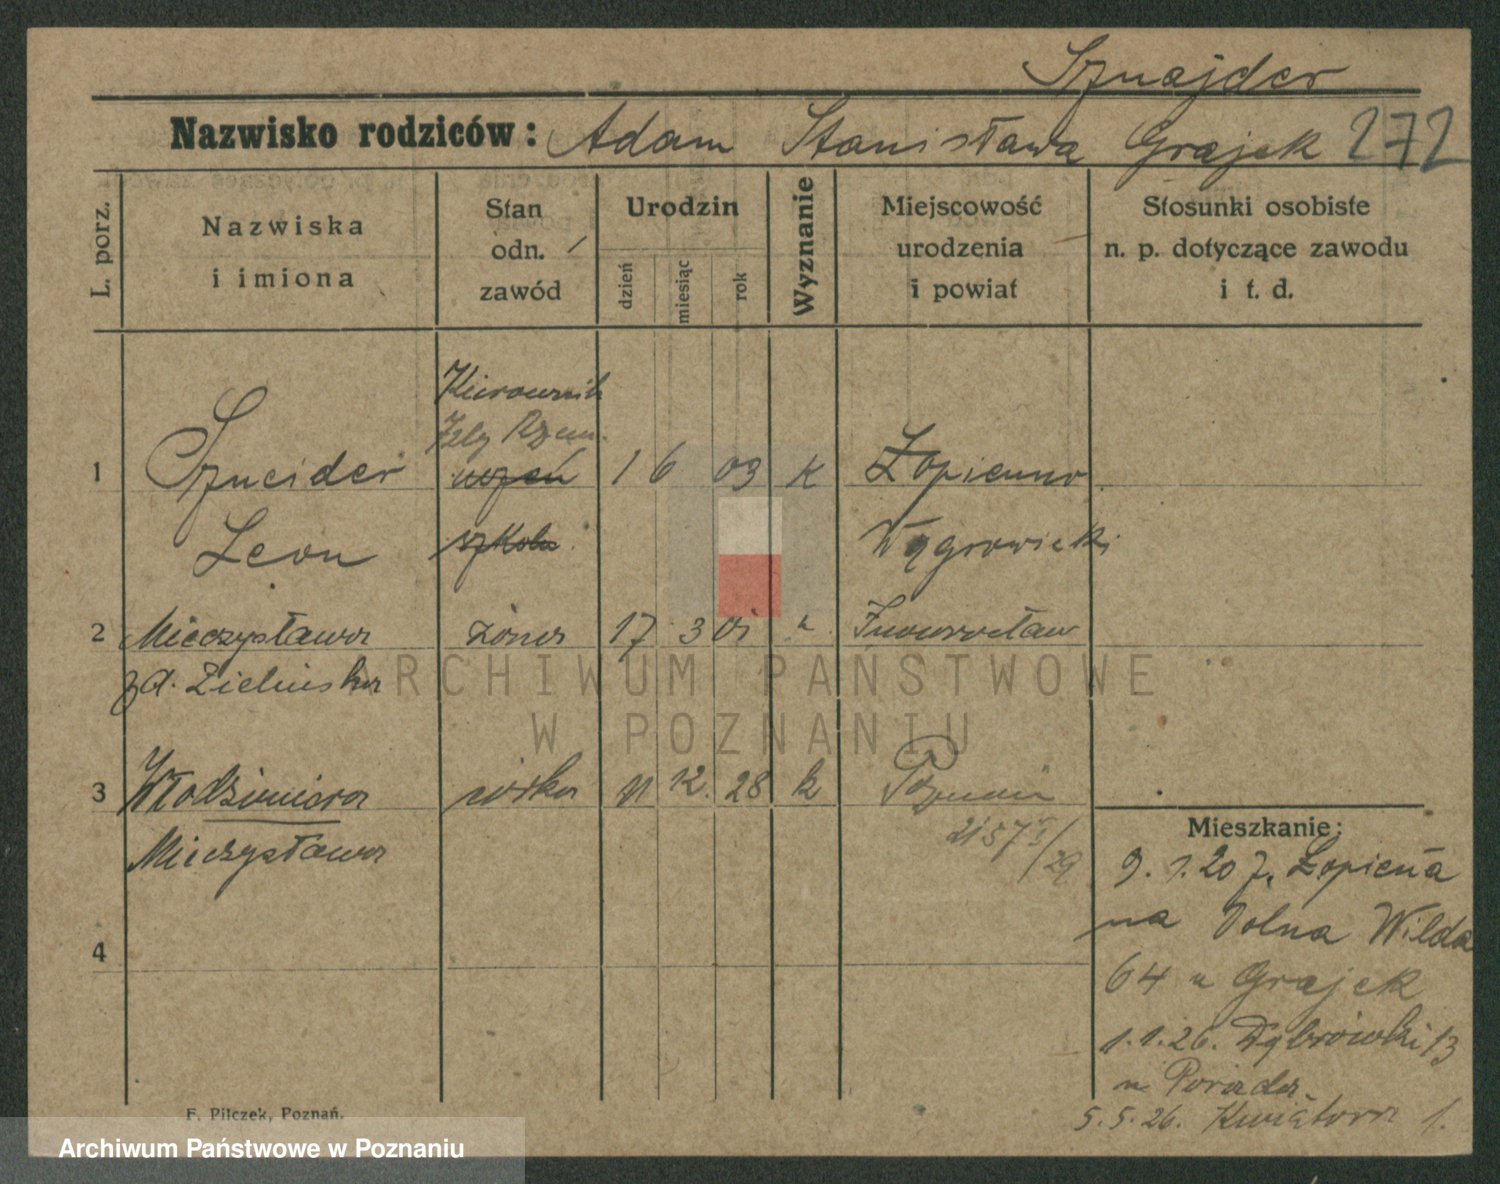 Sznajder
Nazwisko rodziców: Adam Stanisława Grajek 272
L. porz.
Nazwiska
i imiona
Stan
odn.
zawód
Urodzin
dzień
miesiąc
rok
Wyznanie
Miejscowość
urodzenia
i powiat
Stosunki osobiste
n. p. dotyczące zawodu
i t. d.
Kierownik
Izby Rzem.
1 Szneider uczeń 1 6 03 k Łopienno
Leon szkoln. Wągrowiecki
2 Mieczysława żona 17 3 01 " Inowrocław
zd. Zielinska
3 Włodzimiera córka 11 12. 28 k Poznań
Mieczysława
2157 I/29
4
Mieszkanie:
9. 1. 20 z. Łopiena
na Dolna Wilda
64 u Grajek
1. 1. 26. Dąbrówki 13
u
5. 5. 26. Kwiatowa 1.
F. Pilczek, Poznań.
ARCHIWUM PAŃSTWOWE
W POZNANIU
Archiwum Państwowe w Poznaniu